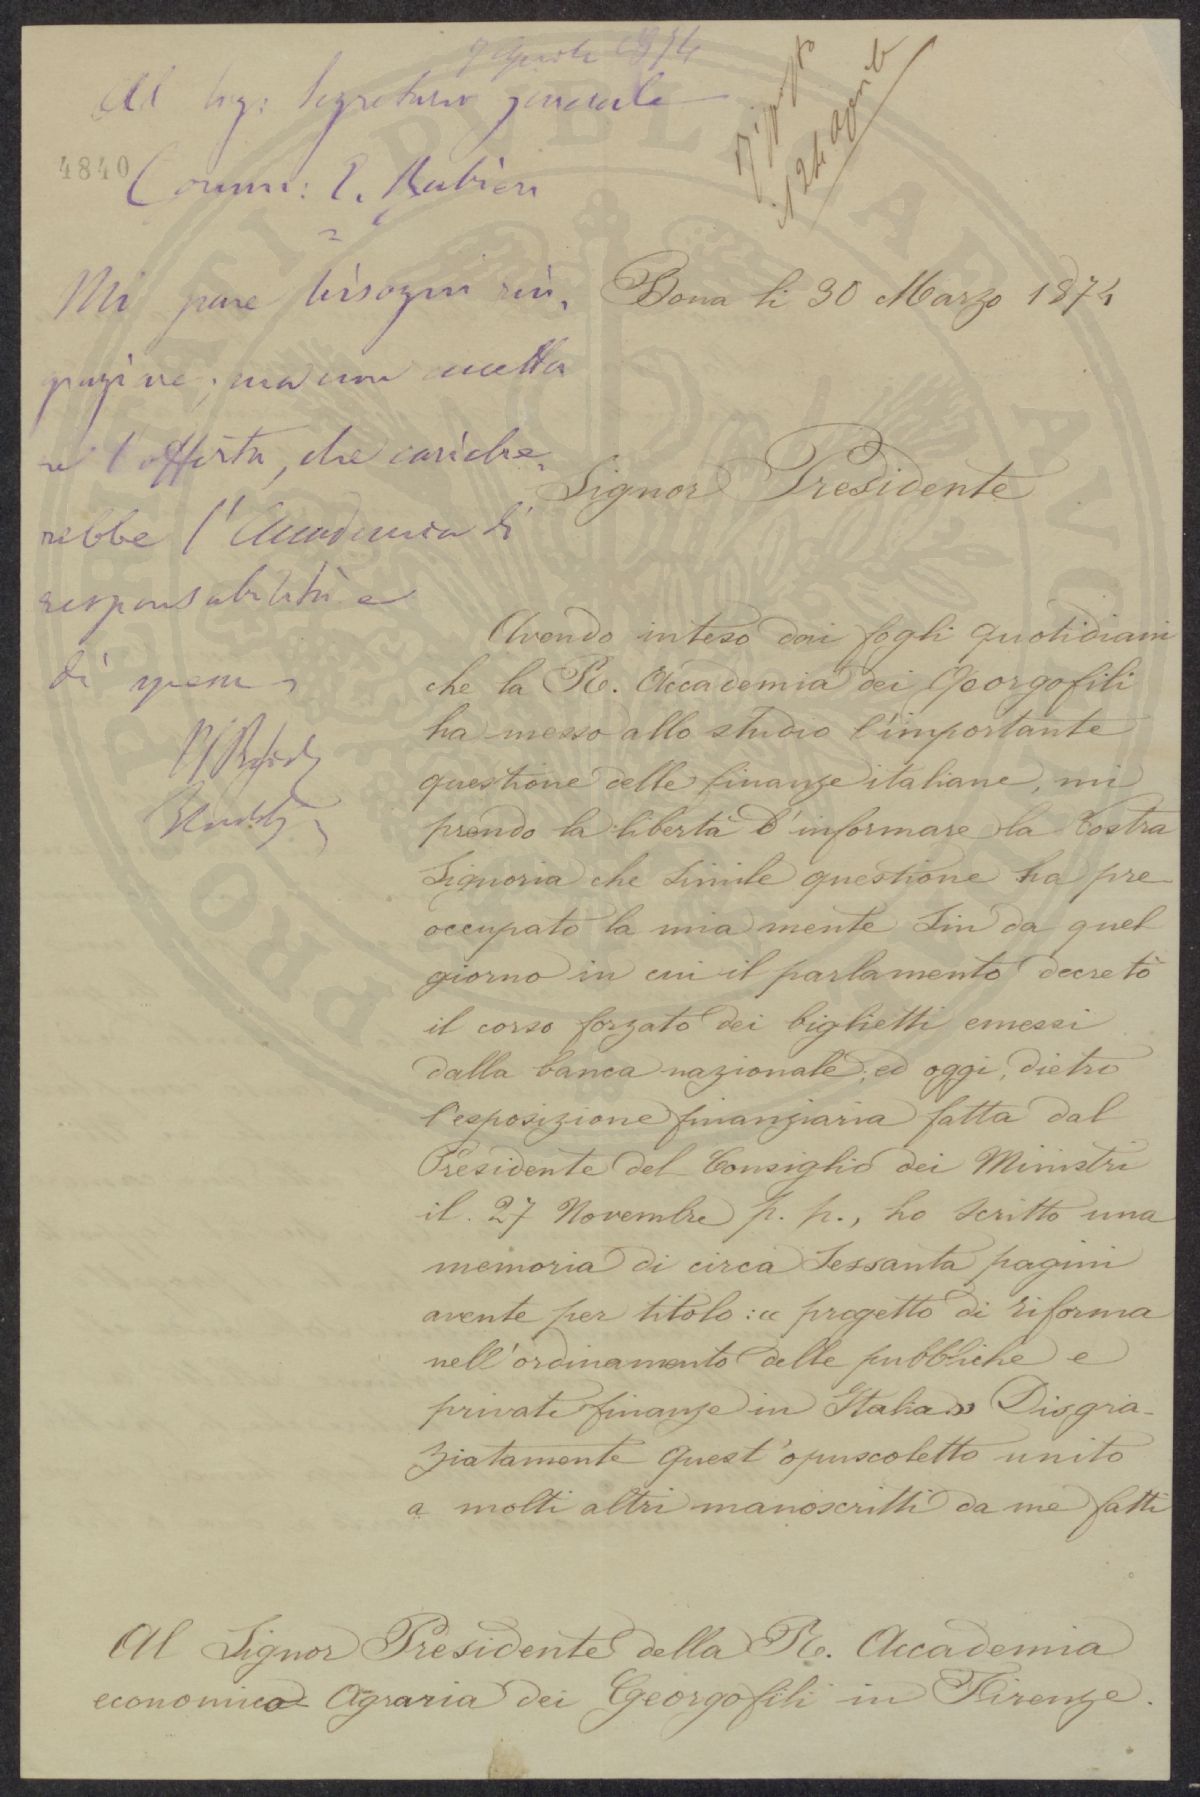 7 Aprile 1874
Al Sig: Segretario generale
4840
Comm: R. Rubieri
Risposto
il 24 Aprile
Mi pare bisogni rin-
graziare, ma non accetta
re l'offerta, che cariche-
rebbe l'Accademia di
responsabilità e
di spesa
Bona li 30 Marzo 1874
Signor Presidente
Avendo inteso dai fogli quotidiani
che la R. Accademia dei Georgofili
ha messo allo studio l'importante
questione delle finanze italiane, mi
prendo la libertà d'informare la Vostra
Signoria che simile questione ha pre-
occupato la mia mente sin da quel
giorno in cui il parlamento decretò
il corso forzato dei biglietti emessi
dalla banca nazionale, ed oggi, dietro
l'esposizione finanziaria fatta dal
Presidente del Consiglio dei Ministri
il 27 Novembre p. p., ho scritto una
memoria di circa sessanta pagini
avente per titolo: « progetto di riforma
nell'ordinamento delle pubbliche e
private finanze in Italia » Disgra-
ziatamente quest'opuscoletto unito
a molti altri manoscritti da me fatti
Al Signor Presidente della R. Accademia
economico Agraria dei Georgofili in Firenze.